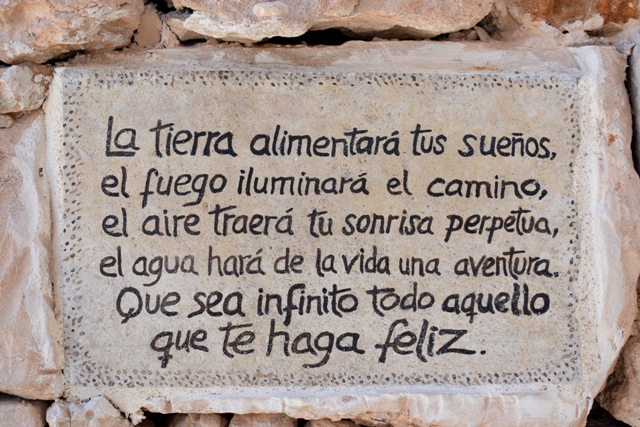 La tierra alimentará tus sueños,
el fuego iluminará el camino,
el aire traerá tu sonrisa perpetua,
el agua hará de la vida una aventura.
Que sea infinito todo aquello
que te haga feliz.